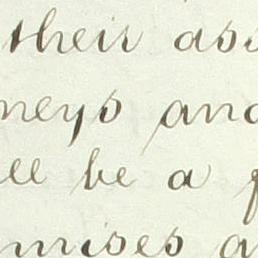 their ass
neys and
ll be a
mises a